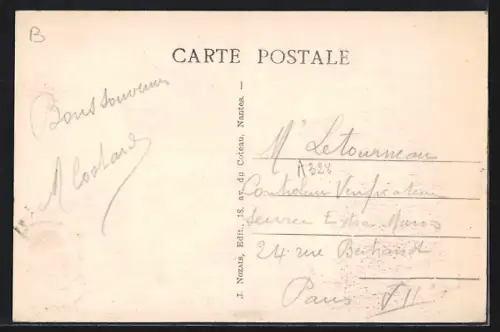 B
CARTE POSTALE
Bons souvenirs
M Costard
J. Nozais, Edit., 18, av. du Coteau, Nantes. —
Mr Letourneau
A328
Controleur Verificateur
Service Extra Muros
24 rue Bertrand
Paris VII